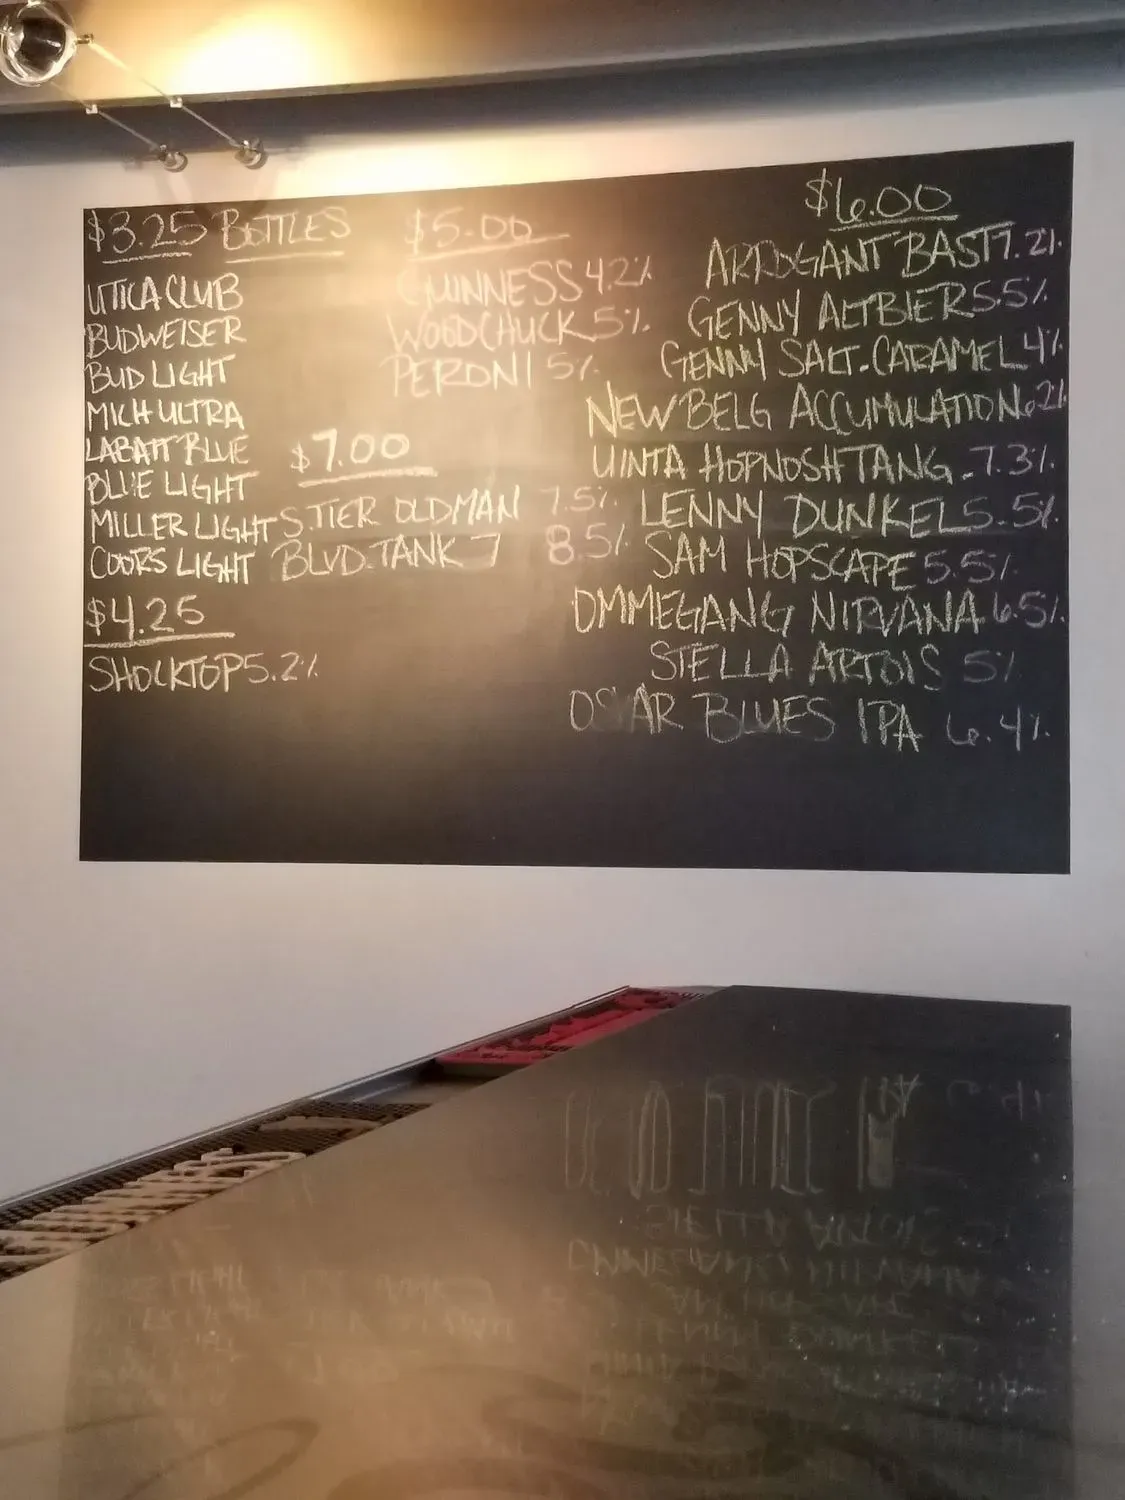 $3.25 BOTTLES
UTICA CLUB
BUDWEISER
BUD LIGHT
MICH ULTRA
LABATT BLUE
BLUE LIGHT
MILLER LIGHT
COORS LIGHT
$4.25
SHOCKTOP 5.2%
$5.00
GUINNESS 4.2%
WOODCHUCK 5%
PERONI 5%
$7.00
S.TIER OLDMAN 7.5%
BLVD.TANK 7 8.5%
$6.00
ARROGANT BAST 7.2%
GENNY ALTBIER 5.5%
GENNY SALT.CARAMEL 4%
NEW BELG ACCUMULATION 6.2%
UINTA HOPNOSH TANG. 7.3%
LENNY DUNKEL 5.5%
SAM HOPSCAPE 5.5%
OMMEGANG NIRVANA 6.5%
STELLA ARTOIS 5%
OSKAR BLUES IPA 6.4%